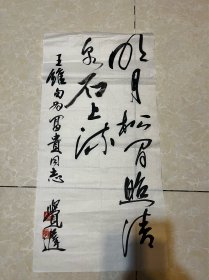 明月松间照清
泉石上流
王维句为冨贵同志